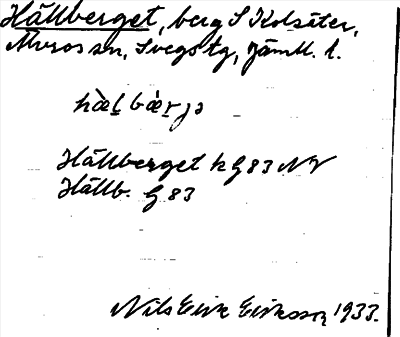 Hållberget, berg S Kolsäter,
Myrås sn, Svegs tg, Jämtl. l.
hæ̀l̥bæ̀rjə
Hållberget k G 83 NV
Hållb. G 83
Nils Eric Eriksson 1933.